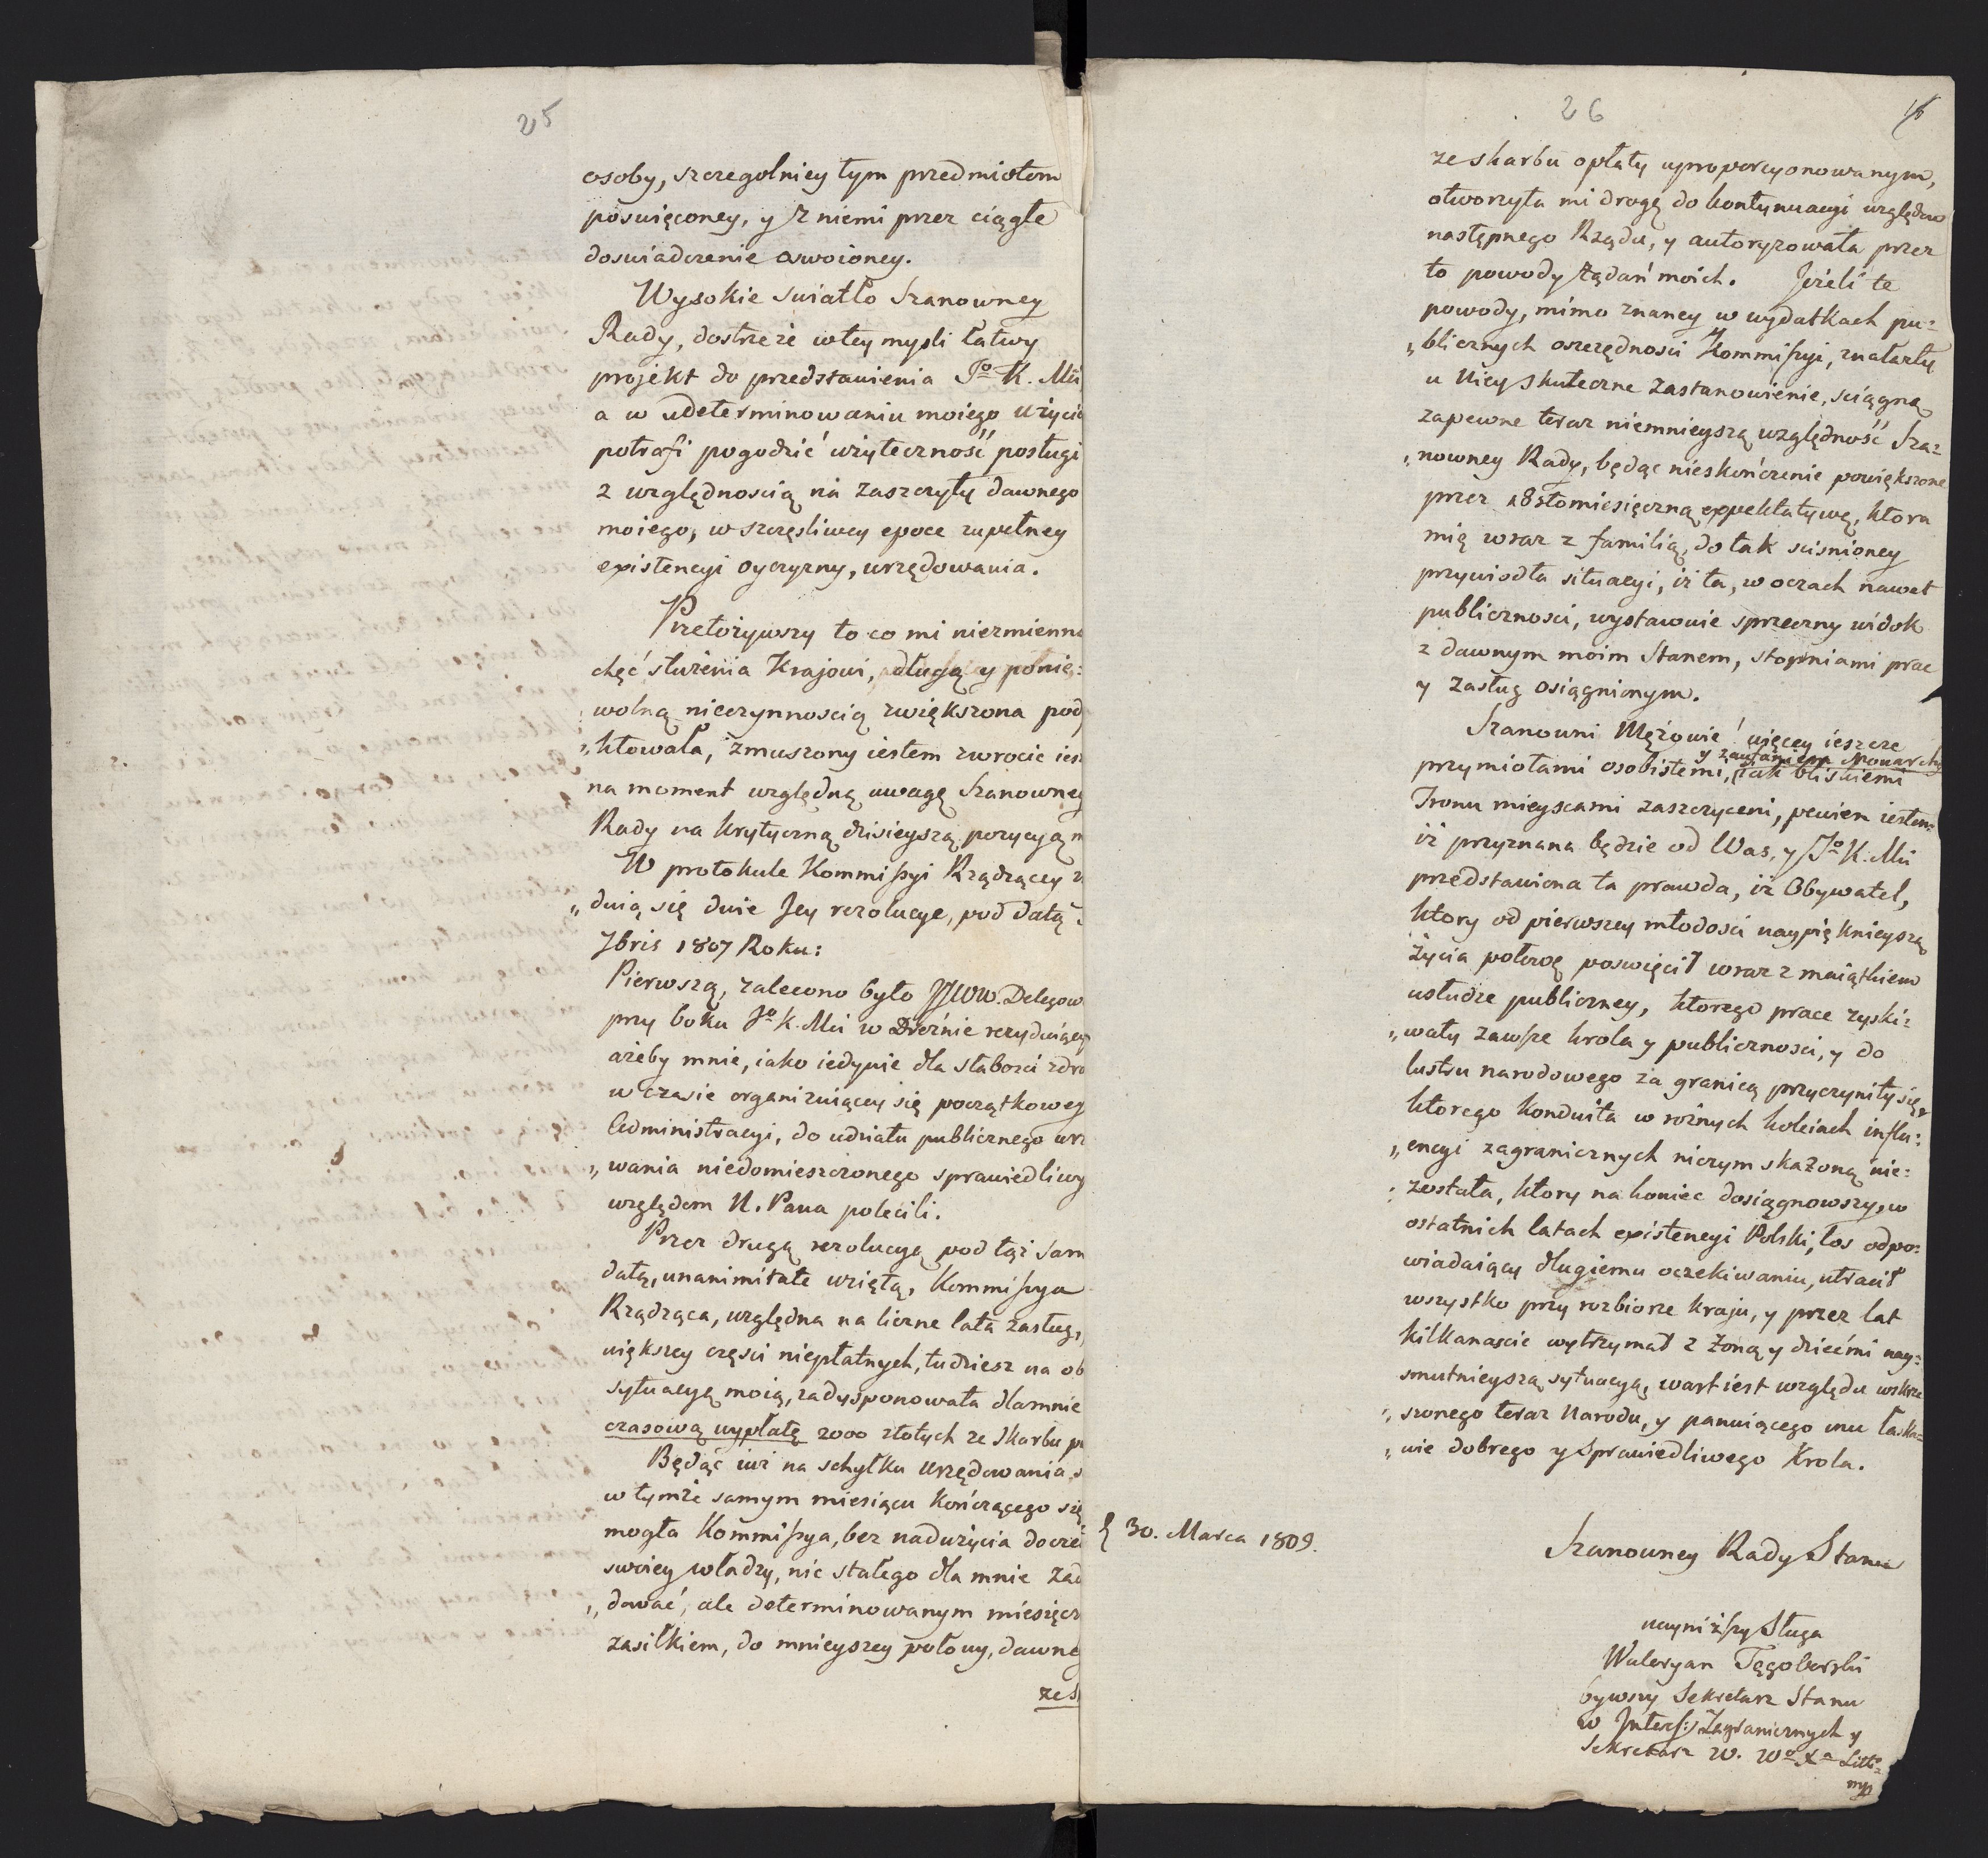 25
osoby, szczegolniey tym przedmiotom
poswięconey, y z niemi przez ciągłe
doswiadczenie oswoioney.
Wysokie swiatło Szanowney
Rady, dostrzeże w tey mysli łatwy
projekt do przedstawienia Jº K. Mci
a w udeterminowaniu moiego użycia
potrafi pogodzić użyteczność posługi
z względnoscią na zaszczyty dawnego
moiego, w szczęsliwey epoce zupełney
existencyi oyczyzny, urzędowania.
Przełożywszy to co mi niezmienna
chęć służenia Krajowi, długą y ponie:
wolną nieczynnoscią zwiększona pod
„ktowała, zmuszony iestem zwrocic ies
na moment względną uwagę Szanowney
Rady na krytyczną dzisieyszą pozycyą m
W protokule Kommissyi Rządzącey z
„duią się dwie Jey rezolucye, pod datą
Xbris 1807 Roku:
Pierwszą, zalecono było JJWW. Delegow
przy boku Jº K. Mci w Dreźnie rezyduiący
ażeby mnie, iako iedynie dla słabosci zdro
w czasie organizuiącey się początkowey
Administracyi, do udziału publicznego urz
„wania niedomieszczonego sprawiedliwy
względom N. Pana polecili.
Przez drugą rezolucyą pod tąż sam
datą, unanimitate wziętą, Kommissya
Rządząca, względna na liczne lata zasług,
większey częsci niepłatnych, tudziesz na ob
sytuacyą moią, zadysponowała dla mnie
czasową wypłatę 2000 złotych ze Skarbu p
Będąc iuż na schyłku urzędowania s
w tymże samym miesiącu kończącego się
mogła Kommissya, bez nadużycia docze
swoiey władzy, nic stałego dla mnie zad
„dować, ale determinowanym miesięcz
zasiłkiem, do mnieyszey połowy, dawne
ze S
26
ze skarbu opłaty uproporcyonowanym,
otworzyła mi drogę do kontynuacyi względow
następnego Rządu, y autoryzowała przez
to powody żądań moich. Jeżeli te
powody, mimo znaney w wydatkach pu:
„blicznych oszczędnosci Kommissyi, znalazły
u Niey skuteczne zastanowienie, sciągną
zapewne teraz niemnieyszą względność Sza:
„nowney Rady, będąc nieskończenie powiększone
przez 18stomiesięczną expektatywę, ktora
mię wraz z familią, do tak scisnioney
przywiodła situacyi, iż ta, w oczach nawet
publicznosci, wystawuie sprzeczny widok
z dawnym moim Stanem, stopniami prac
y zasług osiągnionym.
Szanowni Mężowie! więcey ieszcze
y zaufaniem Monarchy
przymiotami osobistemi, iak bliskiemi
Tronu mieyscami zaszczyceni, pewien iestem
iż przyznana będzie od Was, y Jº K. Mci
przedstawiona ta prawda, iż Obywatel,
ktory od pierwszey młodosci naypięknieyszą
życia połowę poswięcił wraz z maiątkiem
usłudze publiczney, ktorego prace zyski:
„wały zawsze krola y publicznosci, y do
lustru narodowego za granicą przyczyniły się,
ktorego konduita w rożnych koleiach influ:
„encyi zagranicznych niczym skażoną nie:
zostala, ktory na koniec dosiągnowszy, w
ostatnich latach existencyi Polski, los odpo:
wiadaiący długiemu oczekiwaniu, utracił
wszystko przy rozbiorze kraju, y przez lat
kilkanascie wytrzymał z żoną y dziećmi nay:
smutnieyszą sytuacyą, wart iest względu wskrze
„szonego teraz Narodu, y panuiącego mu łaska:
„wie dobrego y sprawiedliwego Krola.
30. Marca 1809.
Szanowney Rady Stanu
nayniższy Sługa
Waleryan Tęgoborski
bywszy Sekretarz Stanu
w Interess: Zagranicznych y
Sekretarz W. Wº Xª Litt:
mp